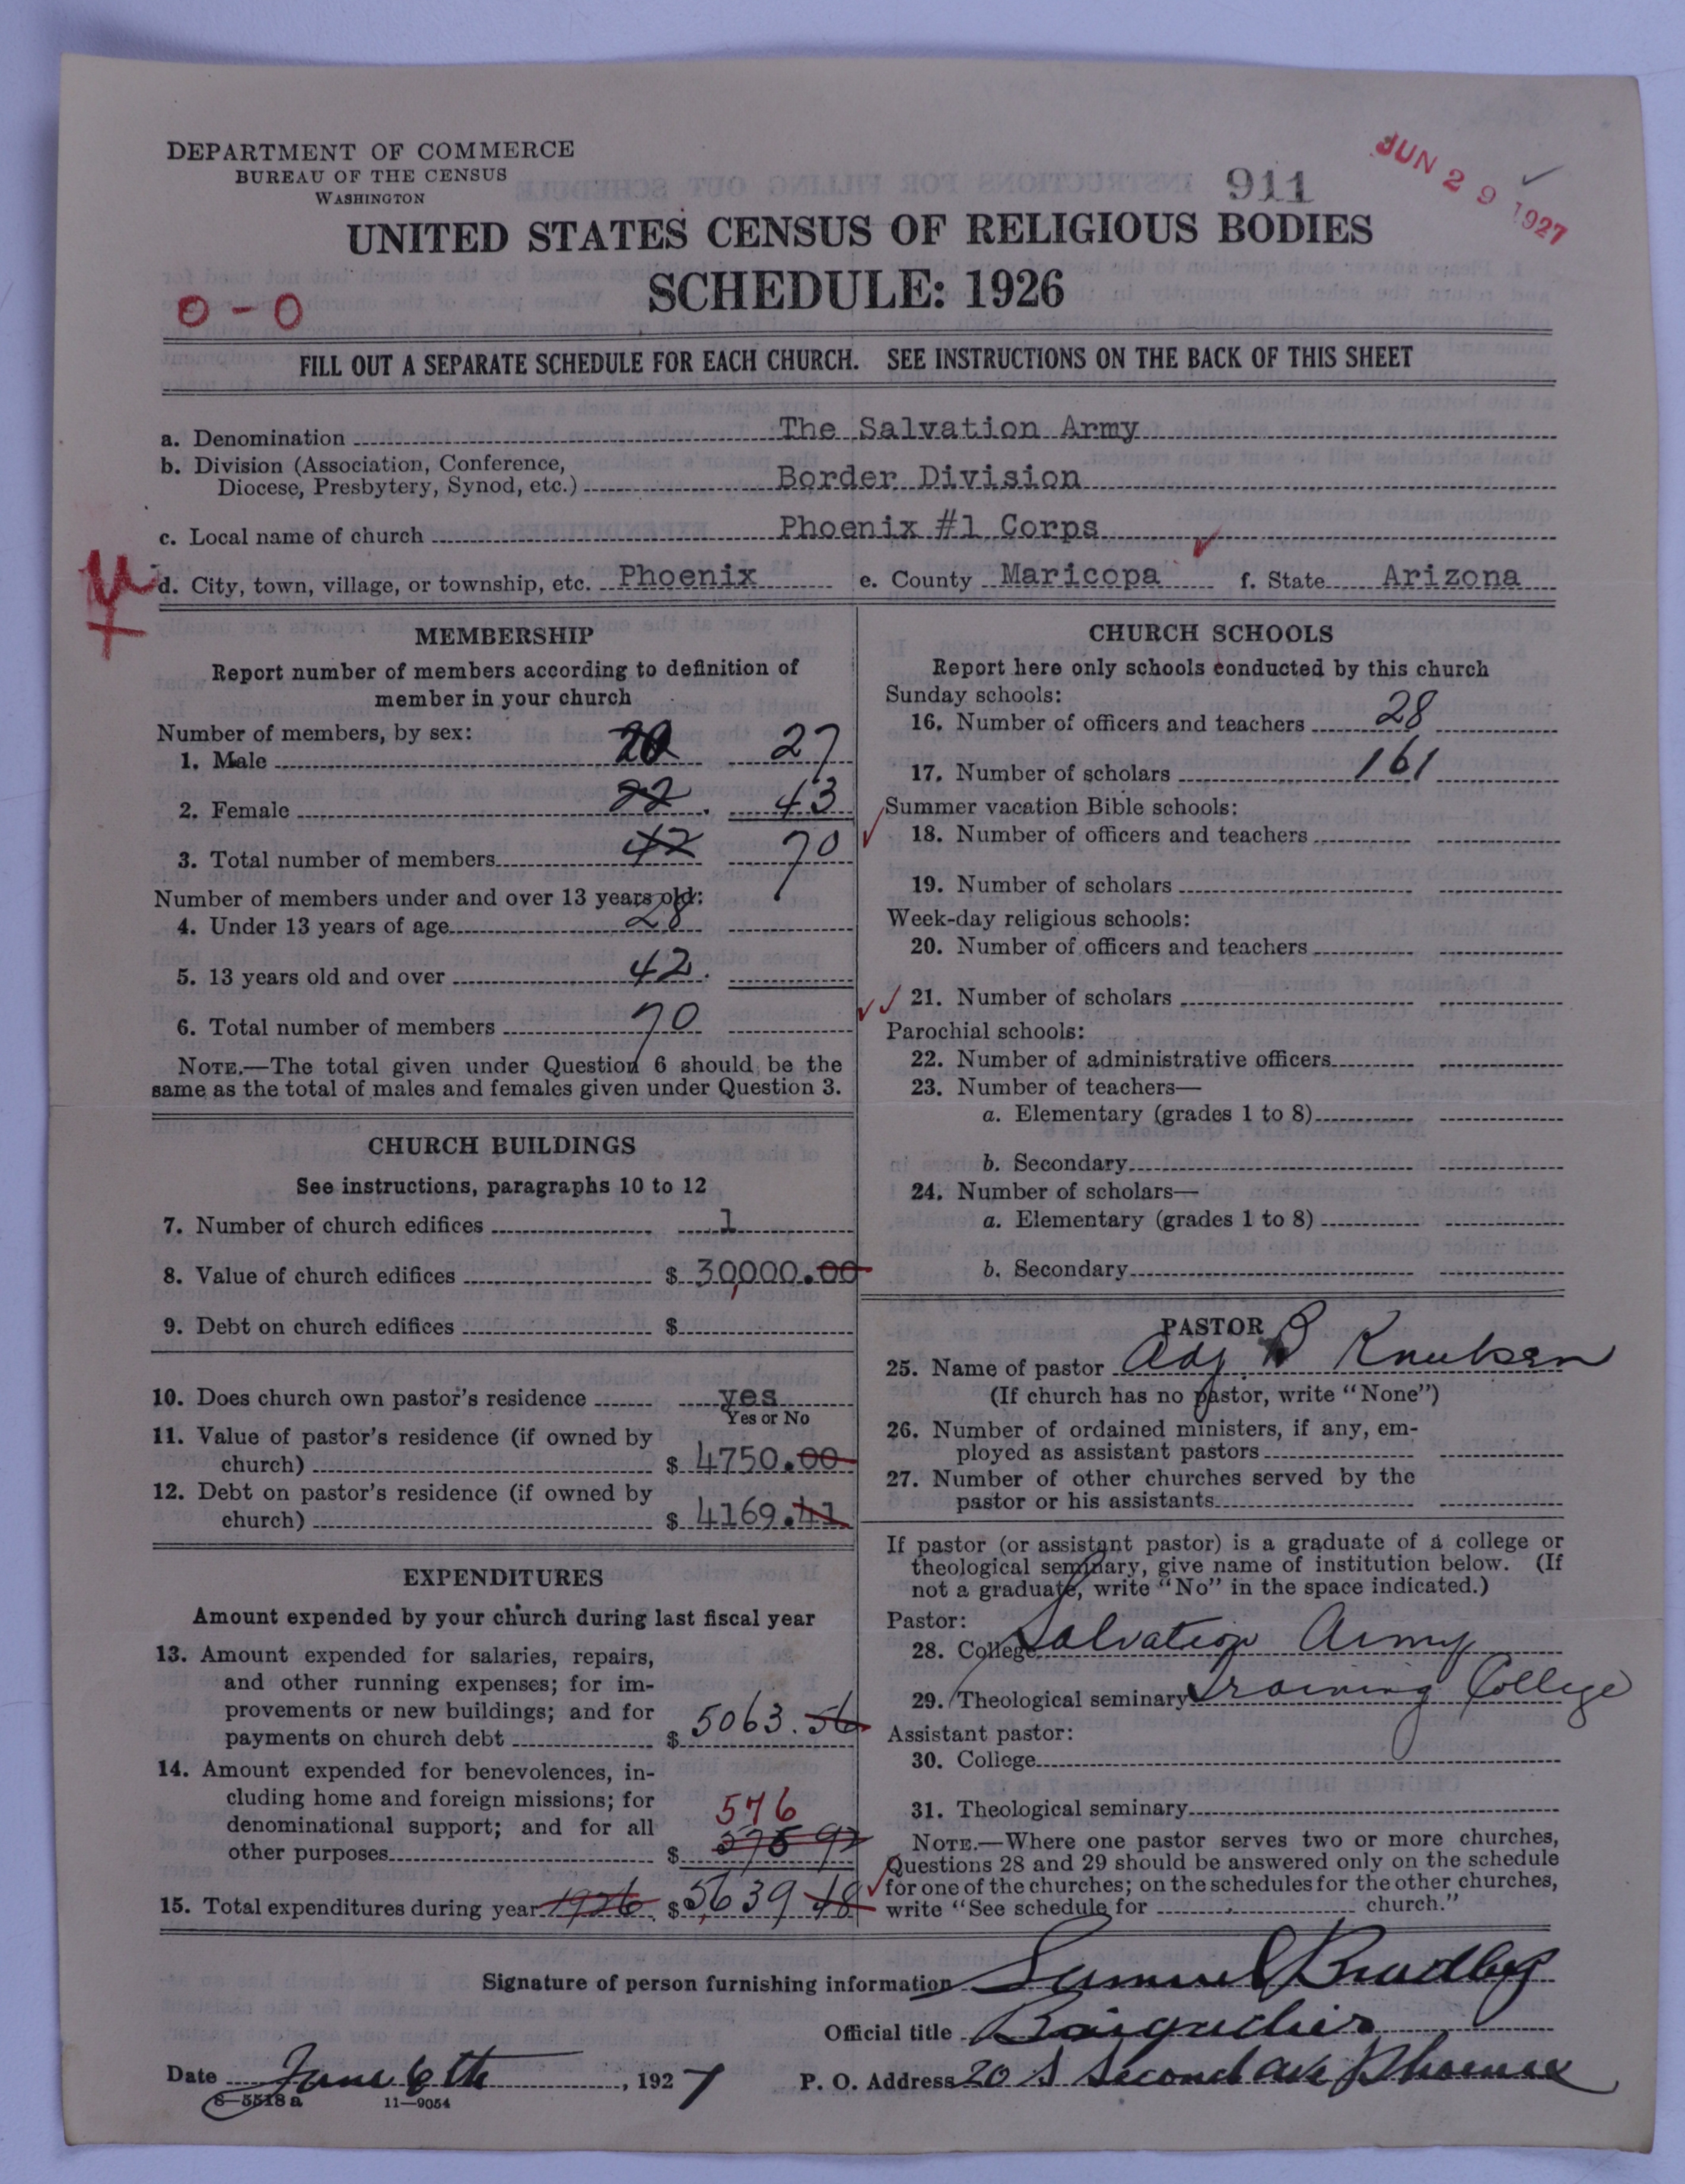 DEPARTMENT OF COMMERCE
BUREAU OF THE CENSUS
WASHINGTON
911
JUN 29 1927
UNITED STATES CENSUS OF RELIGIOUS BODIES
SCHEDULE: 1926
0 - 0
FILL OUT A SEPARATE SCHEDULE FOR EACH CHURCH. SEE INSTRUCTIONS ON THE BACK OF THIS SHEET
a. Denomination The Salvation Army
b. Division (Association, Conference,
Diocese, Presbytery, Synod, etc.) Border Division
c. Local name of church Phoenix #1 Corps
d. City, town, village, or township, etc. Phoenix e. County Maricopa f. State Arizona
MEMBERSHIP
Report number of members according to definition of
member in your church
Number of members, by sex:
1. Male 20 27
2. Female 22 43
3. Total number of members 42 70
Number of members under and over 13 years old:
4. Under 13 years of age 28
5. 13 years old and over 42
6. Total number of members 70
NOTE.—The total given under Question 6 should be the
same as the total of males and females given under Question 3.
CHURCH BUILDINGS
See instructions, paragraphs 10 to 12
7. Number of church edifices 1
8. Value of church edifices $ 30,000.00
9. Debt on church edifices $
10. Does church own pastor's residence yes
Yes or No
11. Value of pastor's residence (if owned by
church) $ 4750.00
12. Debt on pastor's residence (if owned by
church) $ 4169.41
EXPENDITURES
Amount expended by your church during last fiscal year
13. Amount expended for salaries, repairs,
and other running expenses; for im-
provements or new buildings; and for
payments on church debt $ 5063.56
14. Amount expended for benevolences, in-
cluding home and foreign missions; for
denominational support; and for all
576
other purposes $ 575 92
15. Total expenditures during year 1926 $ 5,639 48
CHURCH SCHOOLS
Report here only schools conducted by this church
Sunday schools:
16. Number of officers and teachers 28
17. Number of scholars 161
Summer vacation Bible schools:
18. Number of officers and teachers
19. Number of scholars
Week-day religious schools:
20. Number of officers and teachers
21. Number of scholars
Parochial schools:
22. Number of administrative officers
23. Number of teachers—
a. Elementary (grades 1 to 8)
b. Secondary
24. Number of scholars—
a. Elementary (grades 1 to 8)
b. Secondary
PASTOR
25. Name of pastor Adj B Knutsen
(If church has no pastor, write "None")
26. Number of ordained ministers, if any, em-
ployed as assistant pastors
27. Number of other churches served by the
pastor or his assistants
If pastor (or assistant pastor) is a graduate of a college or
theological seminary, give name of institution below. (If
not a graduate, write "No" in the space indicated.)
Pastor:
28. College Salvation Army
29. Theological seminary Training College
Assistant pastor:
30. College
31. Theological seminary
NOTE.—Where one pastor serves two or more churches,
Questions 28 and 29 should be answered only on the schedule
for one of the churches; on the schedules for the other churches,
write "See schedule for church."
Signature of person furnishing information Samuel Bradley
Official title Brigadier
Date June 6th, 1927 P. O. Address 20 S Second ave Phoenix
8—5518 a 11—9054